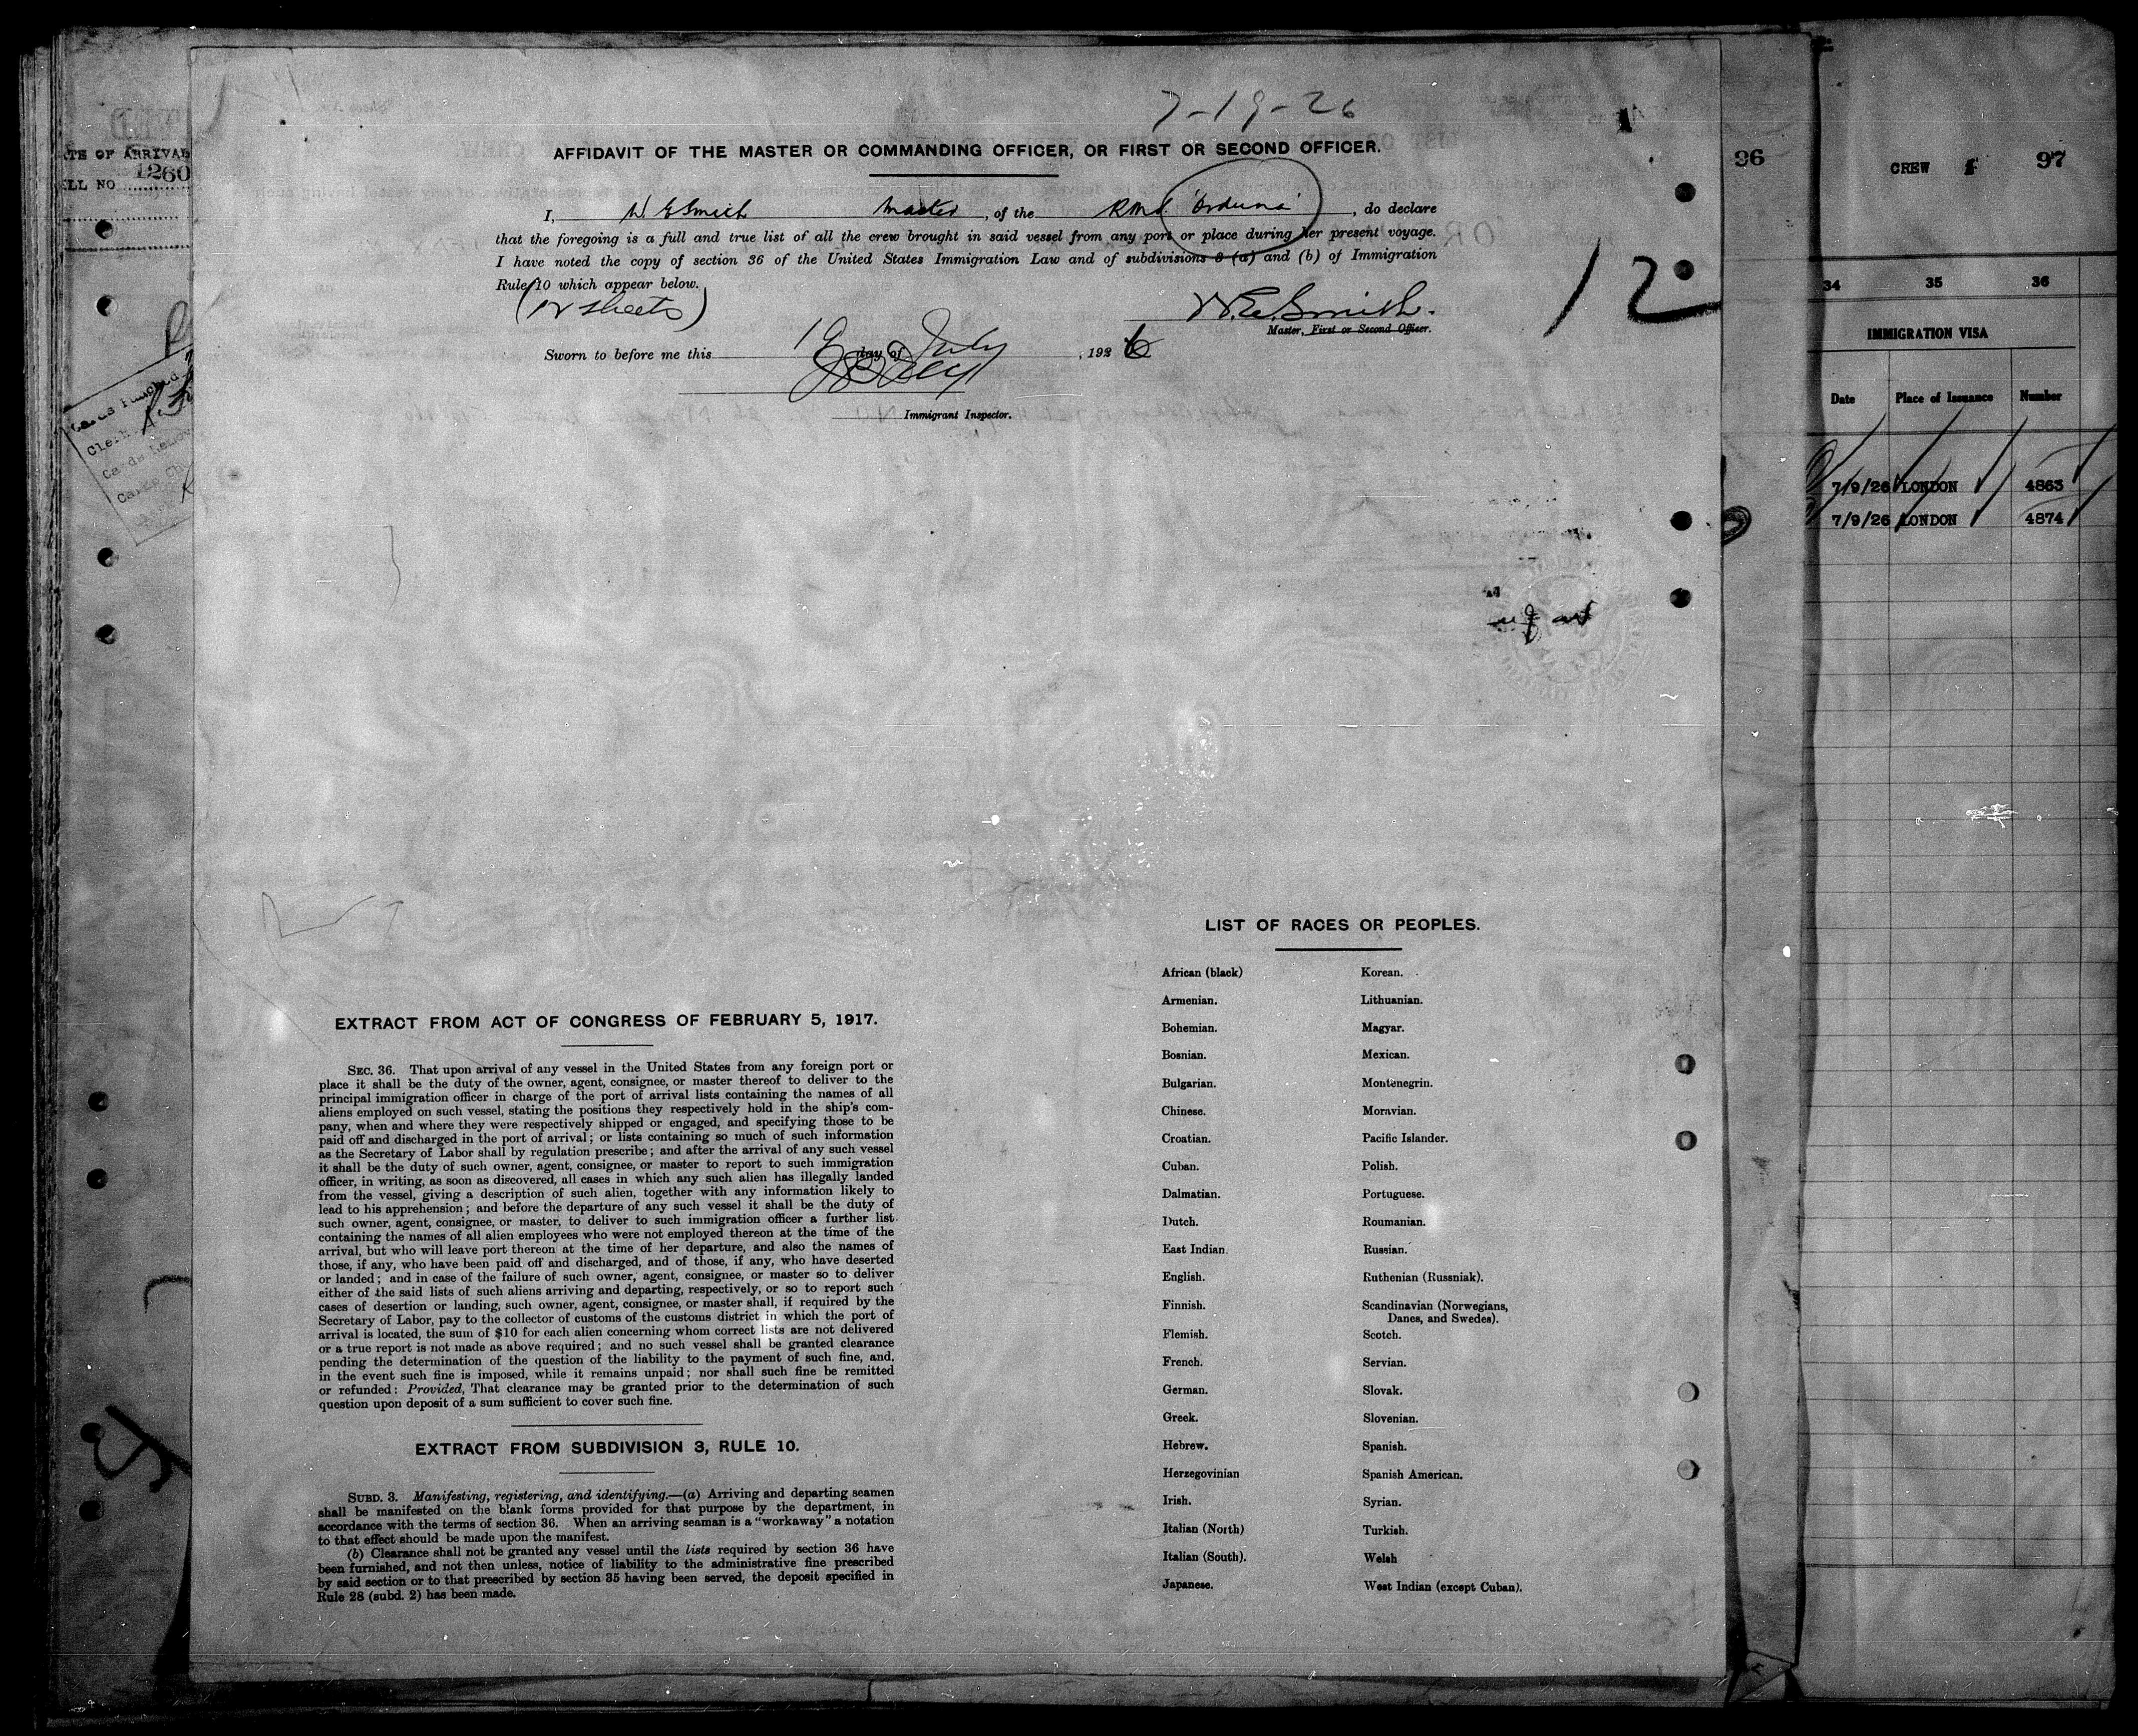 7-19-26
AFFIDAVIT OF THE MASTER OR COMMANDING OFFICER, OR FIRST OR SECOND OFFICER.
I, W E Smith Master, of the R.M.S. "Orduna", do declare
that the foregoing is a full and true list of all the crew brought in said vessel from any port or place during her present voyage.
I have noted the copy of section 36 of the United States Immigration Law and of subdivisions (a) and (b) of Immigration
Rule 10 which appear below.
(12 sheets)
W.E. Smith.
Master, First or Second Officer.
12
Sworn to before me this 19 day of July, 1926
Immigrant Inspector.
LIST OF RACES OR PEOPLES.
African (black)
Armenian.
Bohemian.
Bosnian.
Bulgarian.
Chinese.
Croatian.
Cuban.
Dalmatian.
Dutch.
East Indian.
English.
Finnish.
Flemish.
French.
German.
Greek.
Hebrew.
Herzegovinian
Irish.
Italian (North)
Italian (South).
Japanese.
Korean.
Lithuanian.
Magyar.
Mexican.
Montenegrin.
Moravian.
Pacific Islander.
Polish.
Portuguese.
Roumanian.
Russian.
Ruthenian (Russniak).
Scandinavian (Norwegians,
Danes, and Swedes).
Scotch.
Servian.
Slovak.
Slovenian.
Spanish.
Spanish American.
Syrian.
Turkish.
Welsh
West Indian (except Cuban).
EXTRACT FROM ACT OF CONGRESS OF FEBRUARY 5, 1917.
SEC. 36. That upon arrival of any vessel in the United States from any foreign port or
place it shall be the duty of the owner, agent, consignee, or master thereof to deliver to the
principal immigration officer in charge of the port of arrival lists containing the names of all
aliens employed on such vessel, stating the positions they respectively hold in the ship's com-
pany, when and where they were respectively shipped or engaged, and specifying those to be
paid off and discharged in the port of arrival; or lists containing so much of such information
as the Secretary of Labor shall by regulation prescribe; and after the arrival of any such vessel
it shall be the duty of such owner, agent, consignee, or master to report to such immigration
officer, in writing, as soon as discovered, all cases in which any such alien has illegally landed
from the vessel, giving a description of such alien, together with any information likely to
lead to his apprehension; and before the departure of any such vessel it shall be the duty of
such owner, agent, consignee, or master, to deliver to such immigration officer a further list
containing the names of all alien employees who were not employed thereon at the time of the
arrival, but who will leave port thereon at the time of her departure, and also the names of
those, if any, who have been paid off and discharged, and of those, if any, who have deserted
or landed; and in case of the failure of such owner, agent, consignee, or master so to deliver
either of the said lists of such aliens arriving and departing, respectively, or so to report such
cases of desertion or landing, such owner, agent, consignee, or master shall, if required by the
Secretary of Labor, pay to the collector of customs of the customs district in which the port of
arrival is located, the sum of $10 for each alien concerning whom correct lists are not delivered
or a true report is not made as above required; and no such vessel shall be granted clearance
pending the determination of the question of the liability to the payment of such fine, and,
in the event such fine is imposed, while it remains unpaid; nor shall such fine be remitted
or refunded: Provided, That clearance may be granted prior to the determination of such
question upon deposit of a sum sufficient to cover such fine.
EXTRACT FROM SUBDIVISION 3, RULE 10.
SUBD. 3. Manifesting, registering, and identifying.—(a) Arriving and departing seamen
shall be manifested on the blank forms provided for that purpose by the department, in
accordance with the terms of section 36. When an arriving seaman is a "workaway" a notation
to that effect should be made upon the manifest.
(b) Clearance shall not be granted any vessel until the lists required by section 36 have
been furnished, and not then unless, notice of liability to the administrative fine prescribed
by said section or to that prescribed by section 35 having been served, the deposit specified in
Rule 28 (subd. 2) has been made.
OF ARRIVAL
NO 1260
Clerk
96
CREW
97
34 35 36
IMMIGRATION VISA
Date Place of Issuance Number
7/9/26 LONDON 4863
7/9/26 LONDON 4874